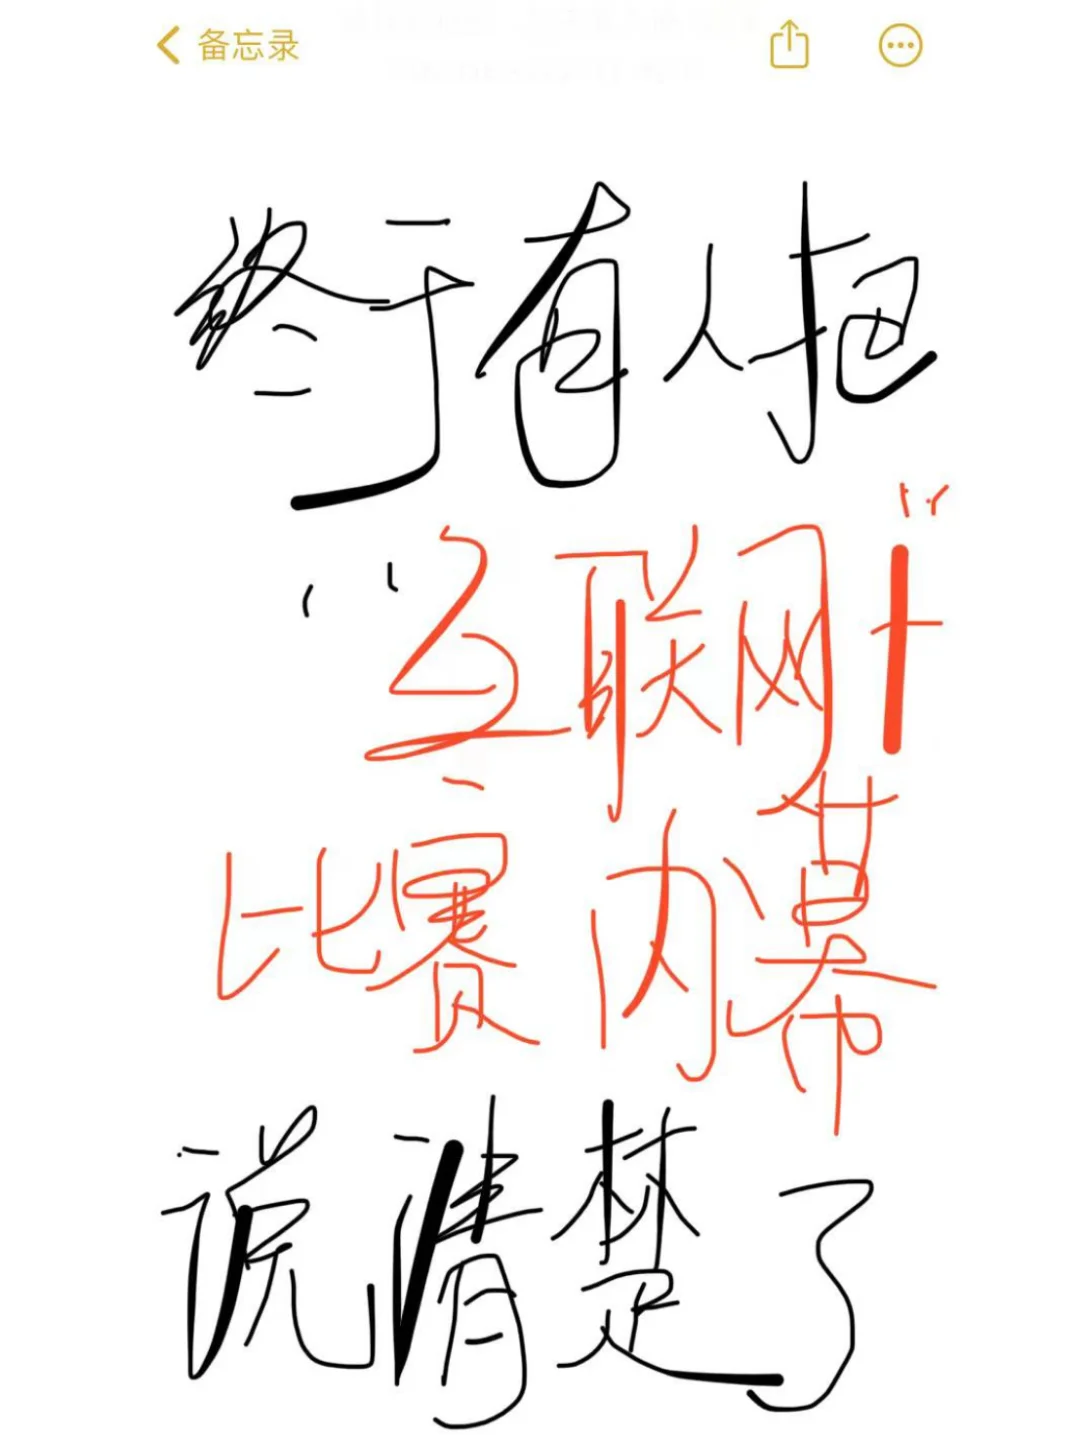 备忘录
终于有人把
“互联网+”
比赛内幕
说清楚了